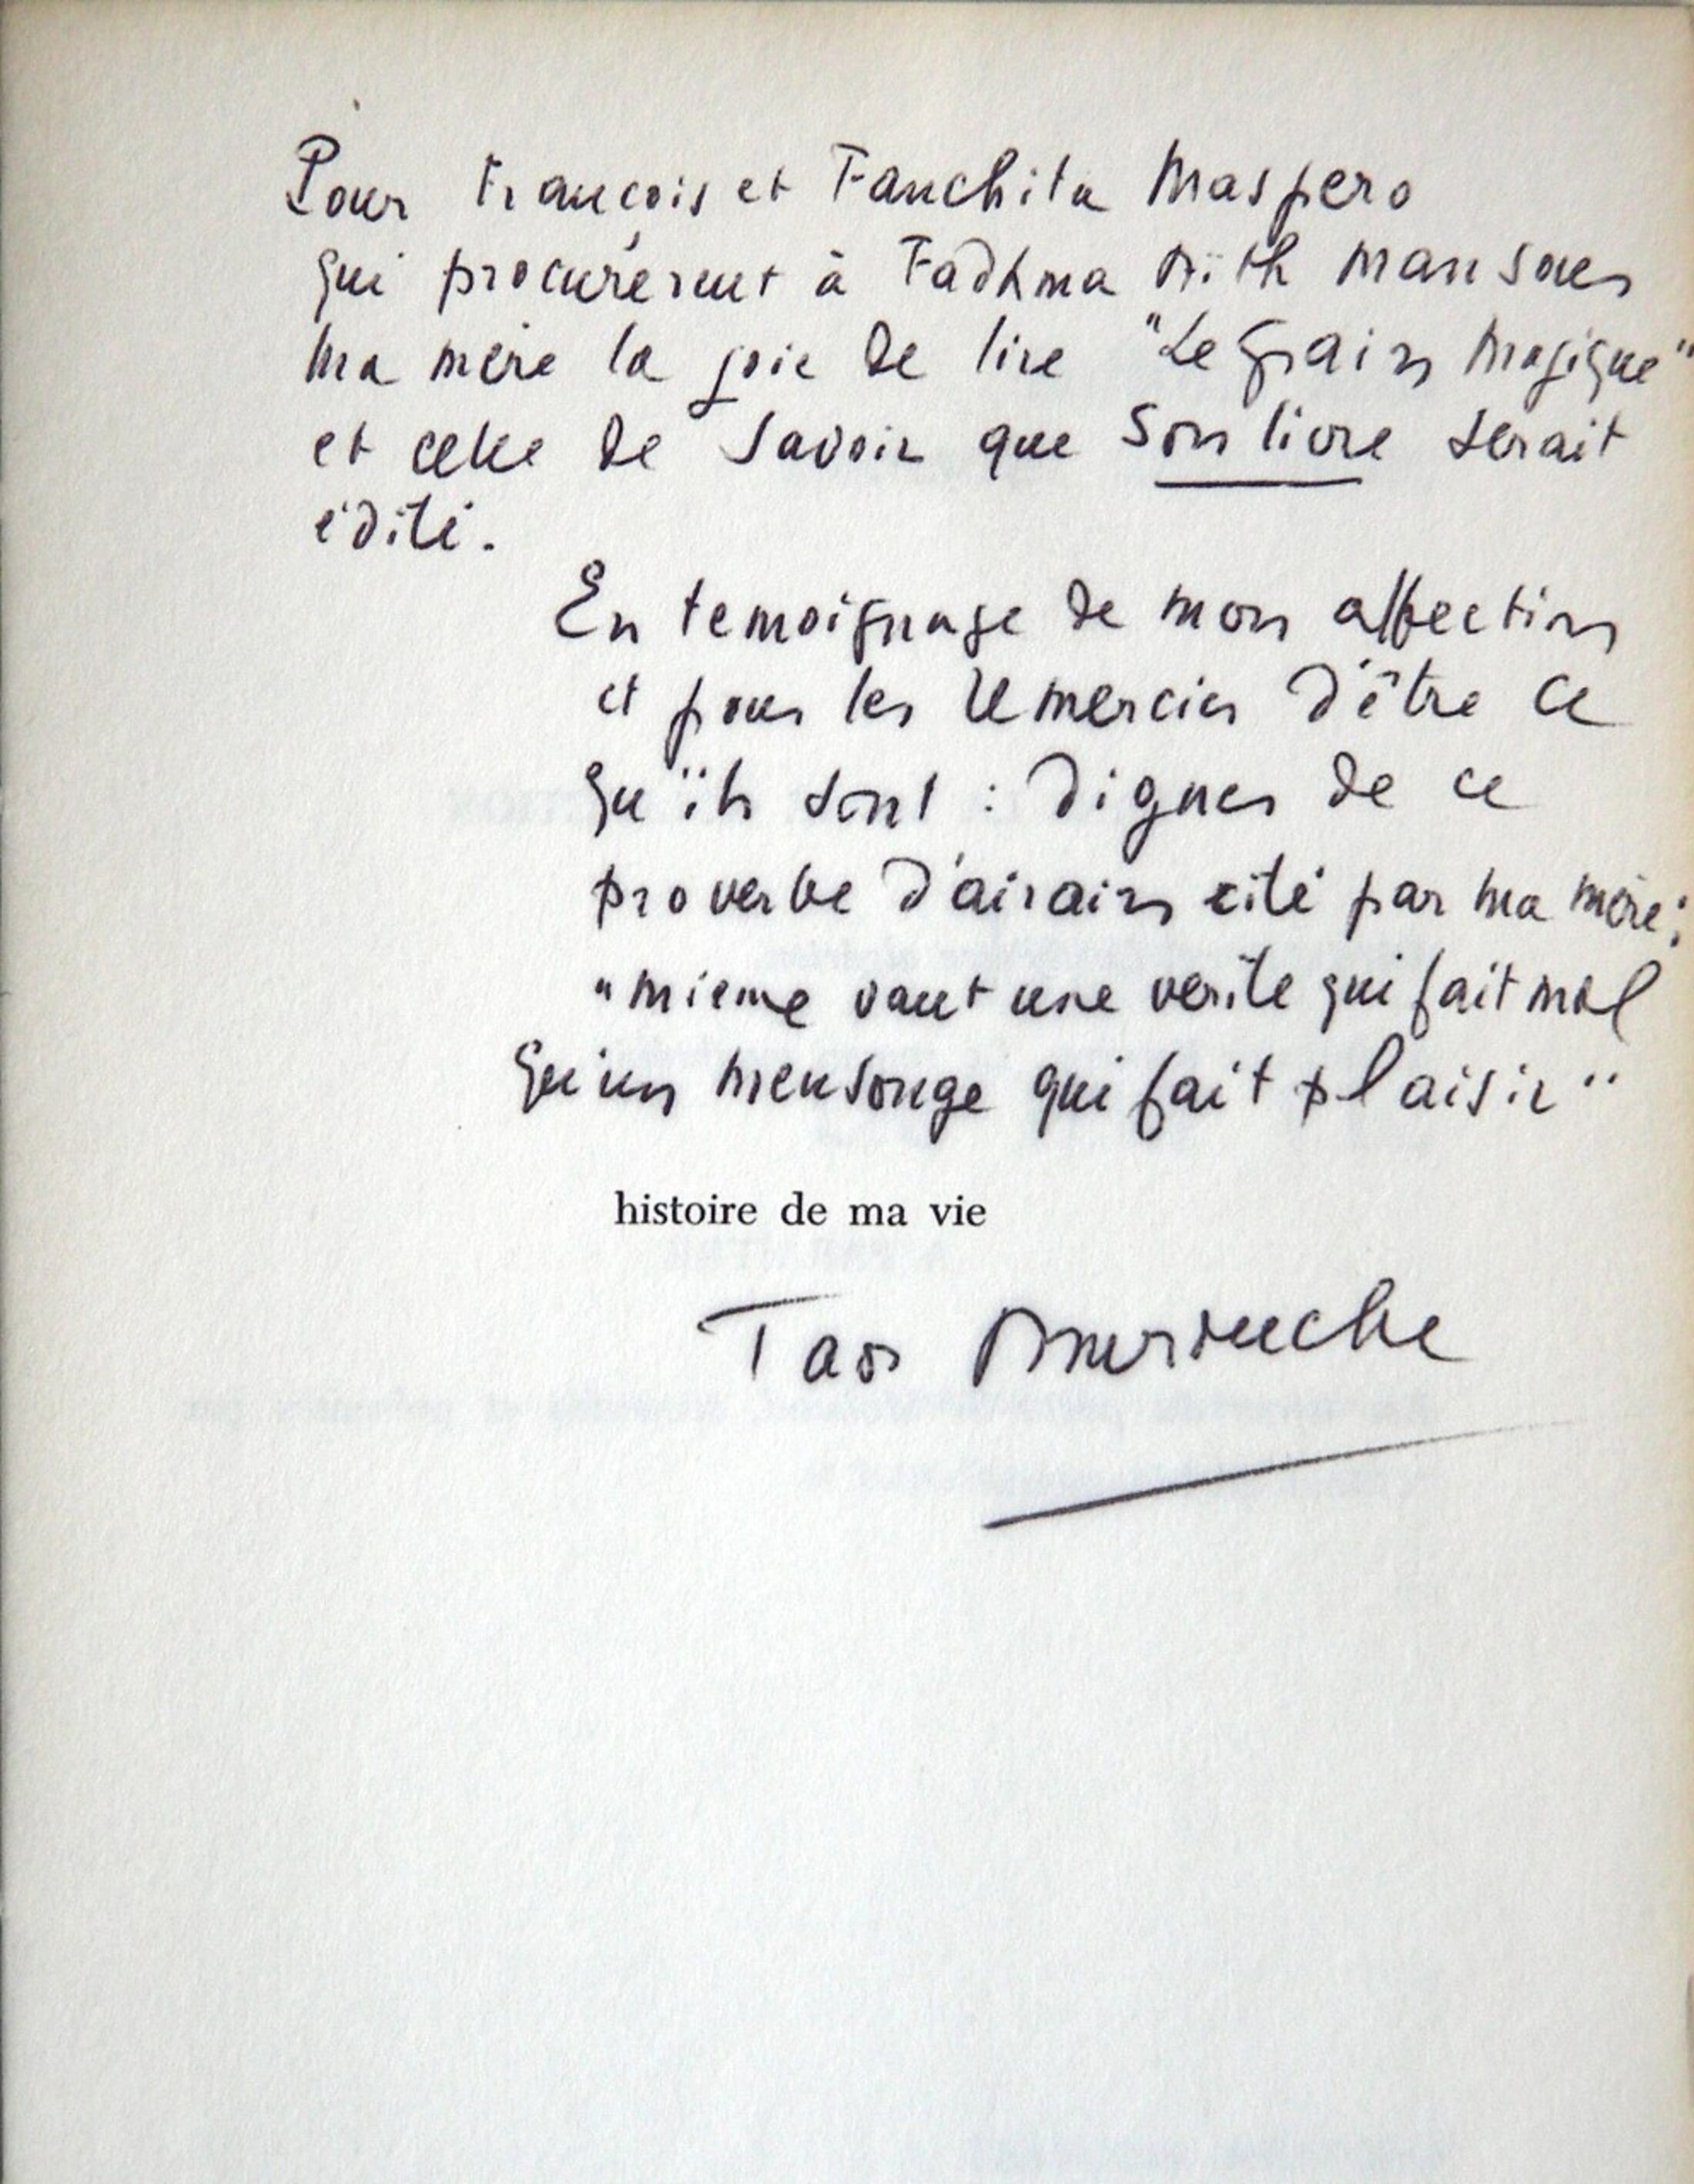 Pour François et Fanchita Maspero
qui procurèrent à Fadhma Aïth Mansour
ma mère la joie de lire "Le Grain Magique"
et celle de savoir que son livre serait
édité.
En temoignage de mon affection
et pour les remercier d'être ce
qu'ils sont : dignes de ce
proverbe d'airain cité par ma mère :
"mieux vaut une verité qui fait mal
qu'un mensonge qui fait plaisir"
histoire de ma vie
Taos Amrouche